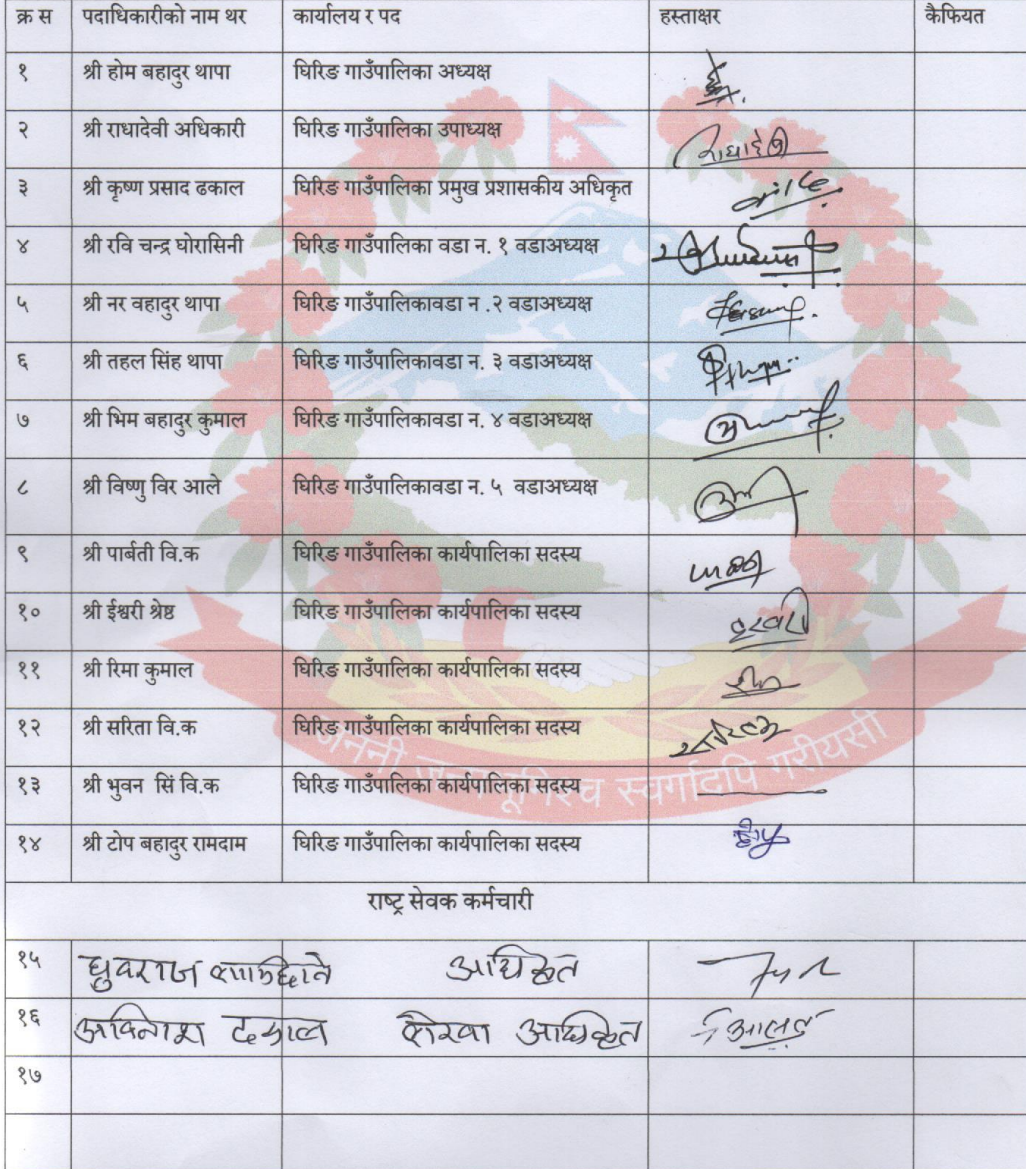 क्र स पदाधिकारीको नाम थर कार्यालय र पद हस्ताक्षर कैफियत
१ श्री होम बहादुर थापा घिरिङ गाउँपालिका अध्यक्ष
२ श्री राधादेवी अधिकारी घिरिङ गाउँपालिका उपाध्यक्ष राधादेवी
३ श्री कृष्ण प्रसाद ढकाल घिरिङ गाउँपालिका प्रमुख प्रशासकीय अधिकृत
४ श्री रवि चन्द्र घोरासिनी घिरिङ गाउँपालिका वडा न. १ वडाअध्यक्ष
५ श्री नर वहादुर थापा घिरिङ गाउँपालिकावडा न .२ वडाअध्यक्ष
६ श्री तहल सिंह थापा घिरिङ गाउँपालिकावडा न. ३ वडाअध्यक्ष
७ श्री भिम बहादुर कुमाल घिरिङ गाउँपालिकावडा न. ४ वडाअध्यक्ष
८ श्री विष्णु विर आले घिरिङ गाउँपालिकावडा न. ५ वडाअध्यक्ष
९ श्री पार्बती वि.क घिरिङ गाउँपालिका कार्यपालिका सदस्य
१० श्री ईश्वरी श्रेष्ठ घिरिङ गाउँपालिका कार्यपालिका सदस्य
११ श्री रिमा कुमाल घिरिङ गाउँपालिका कार्यपालिका सदस्य
१२ श्री सरिता वि.क घिरिङ गाउँपालिका कार्यपालिका सदस्य
१३ श्री भुवन सिं वि.क घिरिङ गाउँपालिका कार्यपालिका सदस्य
१४ श्री टोप बहादुर रामदाम घिरिङ गाउँपालिका कार्यपालिका सदस्य
जननी जन्मभूमिश्च स्वर्गादपि गरीयसी
राष्ट्र सेवक कर्मचारी
१५ ध्रुवराज अधिकृत
१६ अविनाश ढकाल लेखा अधिकृत
१७